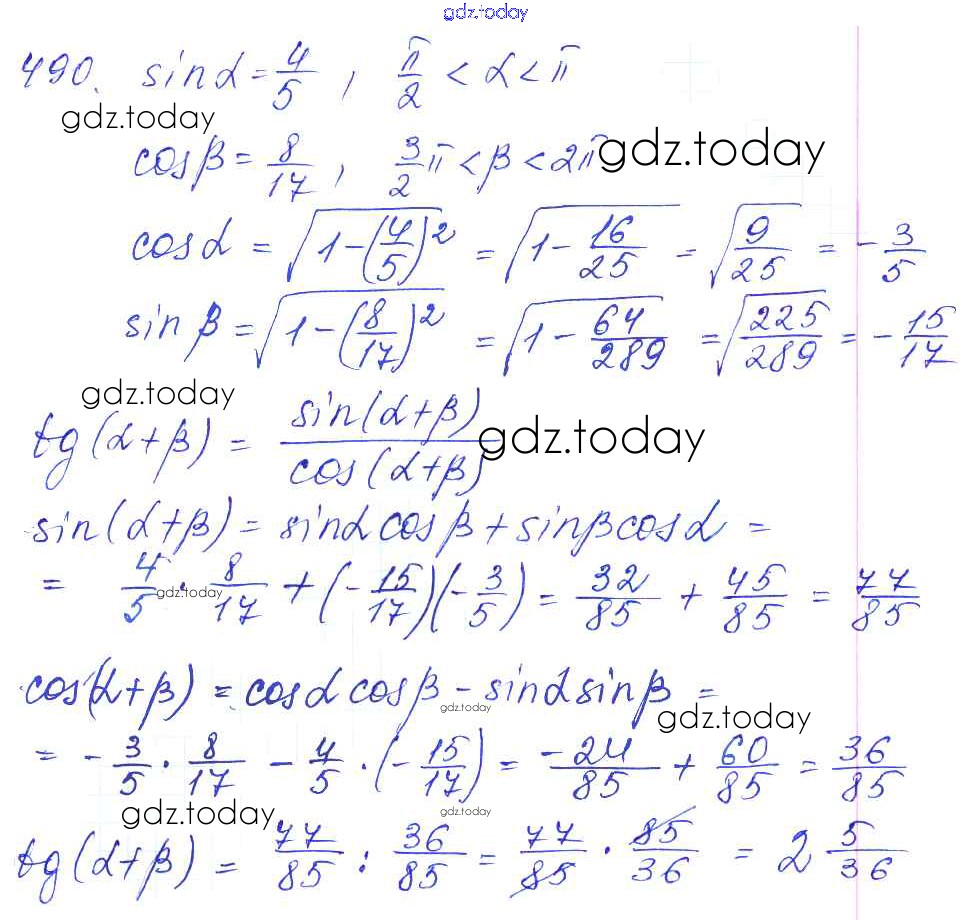 gdz.today
490. sinα = 4/5 , π/2 < α < π
gdz.today
cosβ = 8/17 , 3/2 π < β < 2π gdz.today
cosα = √(1-(4/5)²) = √(1-16/25) = √(9/25) = -3/5
sinβ = √(1-(8/17)²) = √(1-64/289) = √(225/289) = -15/17
gdz.today
tg(α+β) = sin(α+β)/cos(α+β) gdz.today
sin(α+β) = sinα cosβ + sinβ cosα =
= 4/5 · 8/17 + (-15/17)(-3/5) = 32/85 + 45/85 = 77/85
gdz.today
cos(α+β) = cosα cosβ - sinα sinβ =
gdz.today gdz.today
= -3/5 · 8/17 - 4/5 · (-15/17) = -24/85 + 60/85 = 36/85
gdz.today gdz.today
tg(α+β) = 77/85 : 36/85 = 77/85 · 85/36 = 2 5/36